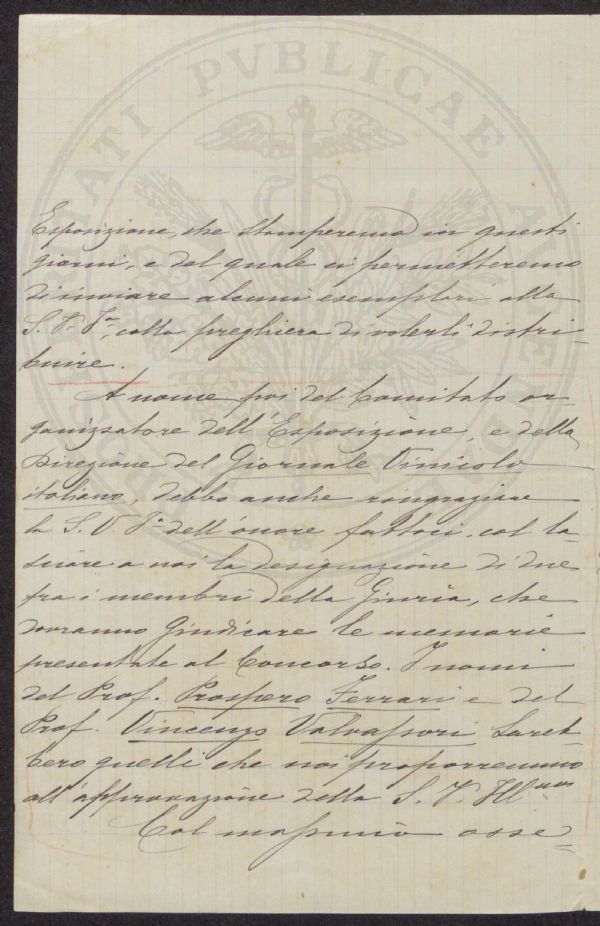 Esposizione, che stamperemo in questi
giorni, e del quale ci permetteremo
di inviare alcuni esemplari alla
S. V. Ill, colla preghiera di volerli distri=
buire.
A nome poi del Comitato or=
ganizzatore dell'Esposizione, e della
Direzione del Giornale Vinicolo
italiano, debbo anche ringraziare
la S. V. Ill dell'onore fattoci, col la=
sciare a noi la designazione di due
fra i membri della Giuria, che
dovranno giudicare le memorie
presentate al Concorso. I nomi
del Prof. Prospero Ferrari e del
Prof. Vincenzo Valvassori sareb=
bero quelli che noi proporremmo
all'approvazione della S. V. Ill.ma
Col massimo osse=